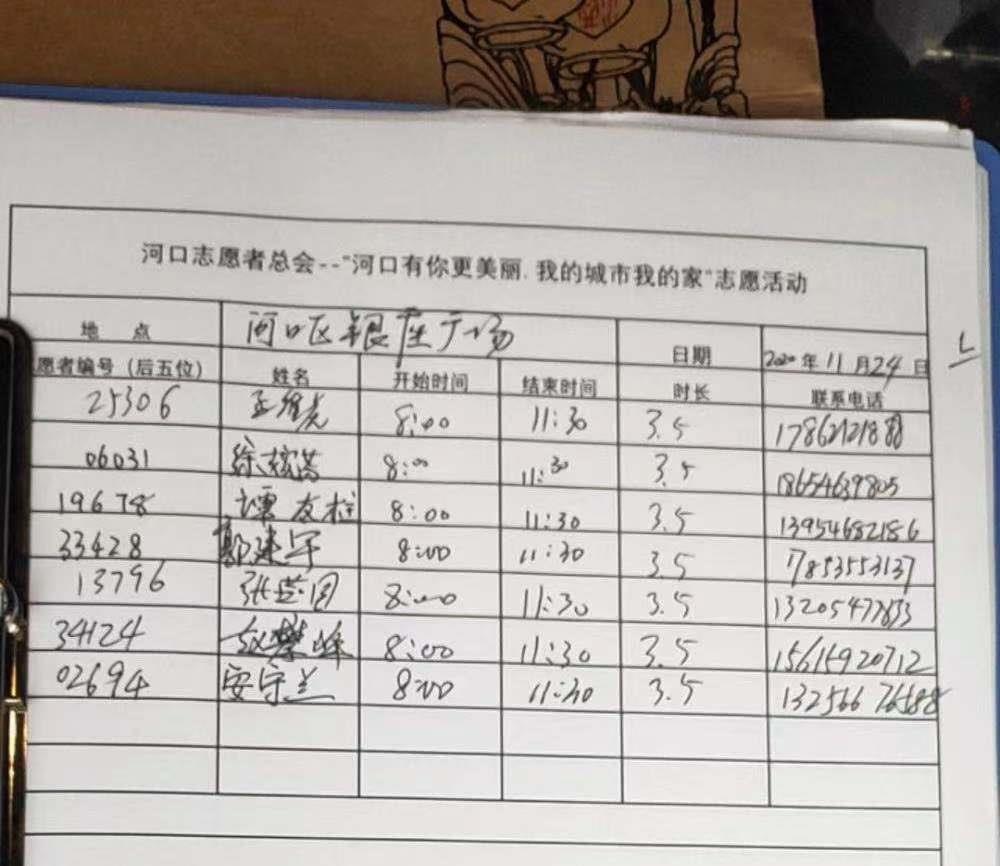 河口志愿者总会--"河口有你更美丽.我的城市我的家"志愿活动
地 点 河口区银座广场 日期 2020年11月24日
愿者编号（后五位） 姓名 开始时间 结束时间 时长 联系电话
25306 8:00 11:30 3.5
06031 8:00 11:30 3.5 18654639805
19678 谭友柱 8:00 11:30 3.5 13954682186
33428 郭建军 8:00 11:30 3.5 17853553137
13796 8:00 11:30 3.5
34124 8:00 11:30 3.5
02694 安守兰 8:00 11:30 3.5